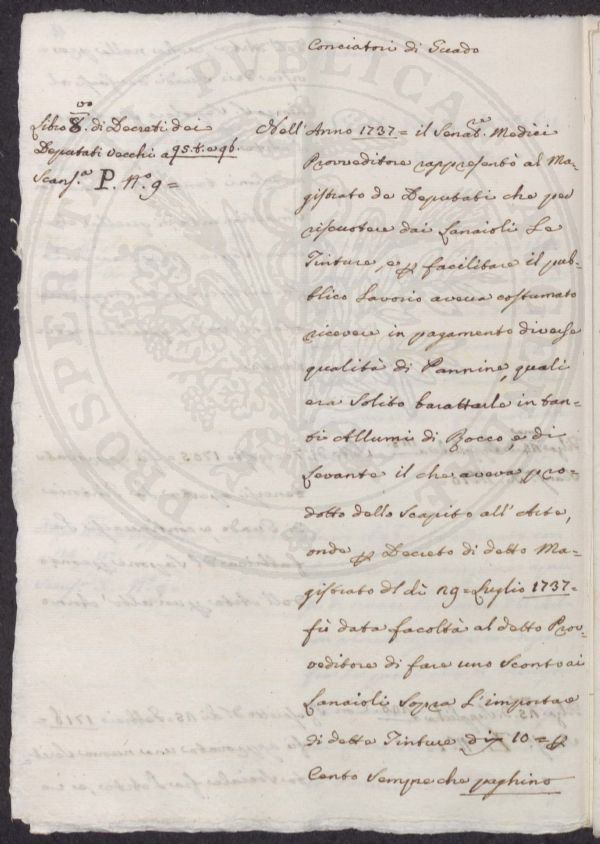 Conciatori di Guado
Libro 8.vo di Decreti dei
Deputati vecchi a 95. t. e 96.
Scans.a P. N.o 9 =
Nell' Anno 1737 = il Senat.e Medici
Provveditore rappresentò al Ma-
gistrato de Deputati che per
riscuotere dai Lanaioli Le
Tinture, e p facilitare il pub-
blico Lavorio aveva costumato
ricevere in pagamento diverse
qualità di Pannine, quali
era Solito barattarle in tan-
ti Allumi di Rocco, e di
Levante il che aveva pro-
dotto dello Scapito all' Arte,
onde p Decreto di detto Ma-
gistrato dl dì 29 = Luglio 1737 =
fù data facoltà al detto Prov-
veditore di fare uno Sconto ai
Lanaioli Sopra L'importare
di dette Tinture, di 10 = p
Cento Sempre che paghino
PROSPERITATI PUBLICAE